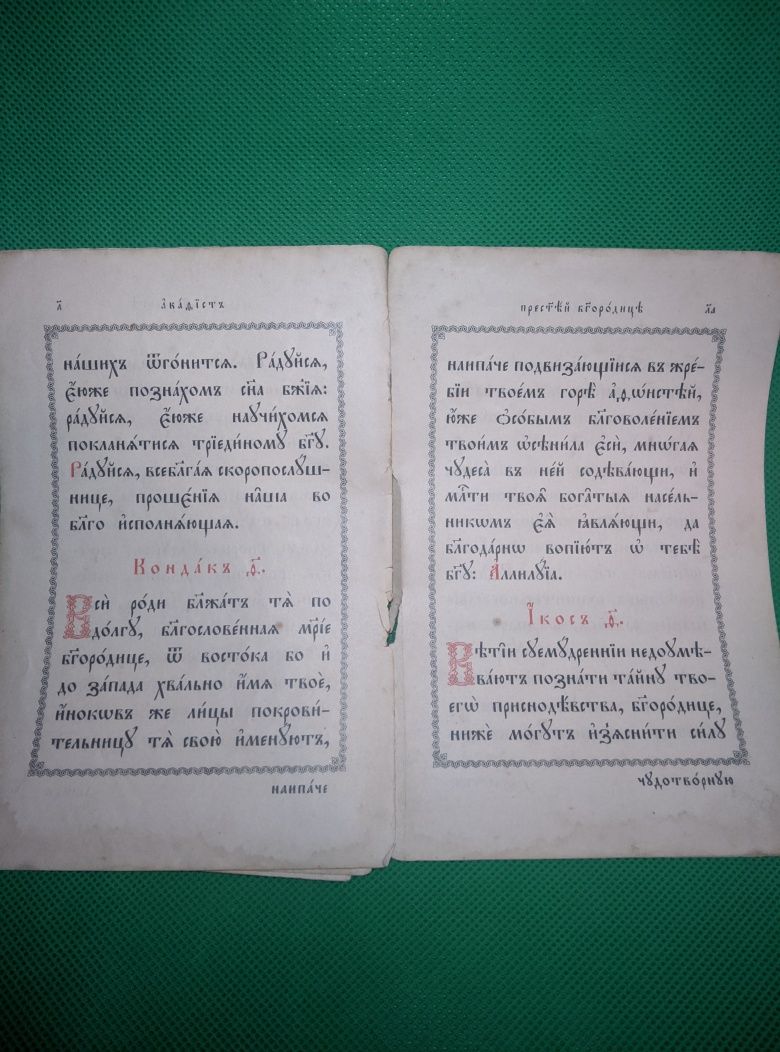 л҃
а҆ка́ѳїстъ
на́шихъ ѿго́нится. Ра́дꙋйся,
є҆́юже позна́хомъ сн҃а бж҃їѧ:
ра́дꙋйся, є҆́юже наꙋчи́хомся
покланѧ́тися трїеди́номꙋ бг҃ꙋ.
Ра́дꙋйся, всебл҃га́ѧ скоропослꙋ́ш-
нице, проше́нїѧ на̑ша во
бл҃го и҆сполнѧ́ющая.
Конда́къ ѳ҃.
Всѝ ро́ди бл҃жа́тъ тѧ̀ по
до́лгꙋ, бл҃гослове́нная мр҃і́е
бг҃оро́дице, ѿ восто́ка бо и҆
до за́пада хва́льно и҆́мя твоѐ,
и҆́нокѡвъ же ли́цы покрови́-
тельницꙋ тѧ̀ свою̀ и҆менꙋ́ютъ,
наипа́че
прест҃ѣ́й бг҃оро́дицѣ
л҃а
наипа́че подвиза́ющїися въ жре́-
бїи твое́мъ горѣ̀ а҆ѳѡ́нстѣй,
ю҆́же ѻ҆со́бымъ бл҃говоле́нїемъ
твои́мъ ѡ҆сѣни́ла є҆сѝ, мнѡ́гая
чꙋдеса̀ въ не́й содѣ́вающи, и҆
мл҃ти твоѧ̑ бога̑тыѧ насе́ль-
никѡмъ є҆ѧ̀ ꙗ҆влѧ́ющи, да
бл҃года́рнѡ вопїю́тъ ѡ҆ тебѣ̀
бг҃ꙋ: А҆ллилꙋ́їа.
І҆́косъ ѳ҃.
Вѣті̑и сꙋемꙋ́дреннїи недоꙋмѣ-
ва́ютъ позна́ти та́йнꙋ тво-
егѡ̀ приснодѣ́вства, бг҃оро́дице,
нижѐ мо́гꙋтъ и҆з̾ѧсни́ти си́лꙋ
чꙋдотво́рнꙋю